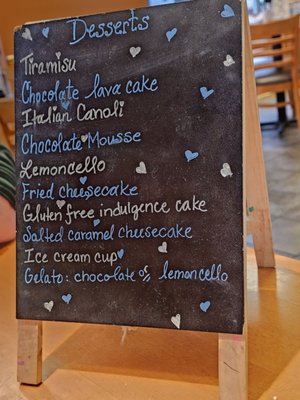 Desserts
Tiramisu
Chocolate lava cake
Italian Canoli
Chocolate Mousse
Lemoncello
Fried cheesecake
Gluten free indulgence cake
Salted caramel cheesecake
Ice cream cup
Gelato: chocolate or lemoncello